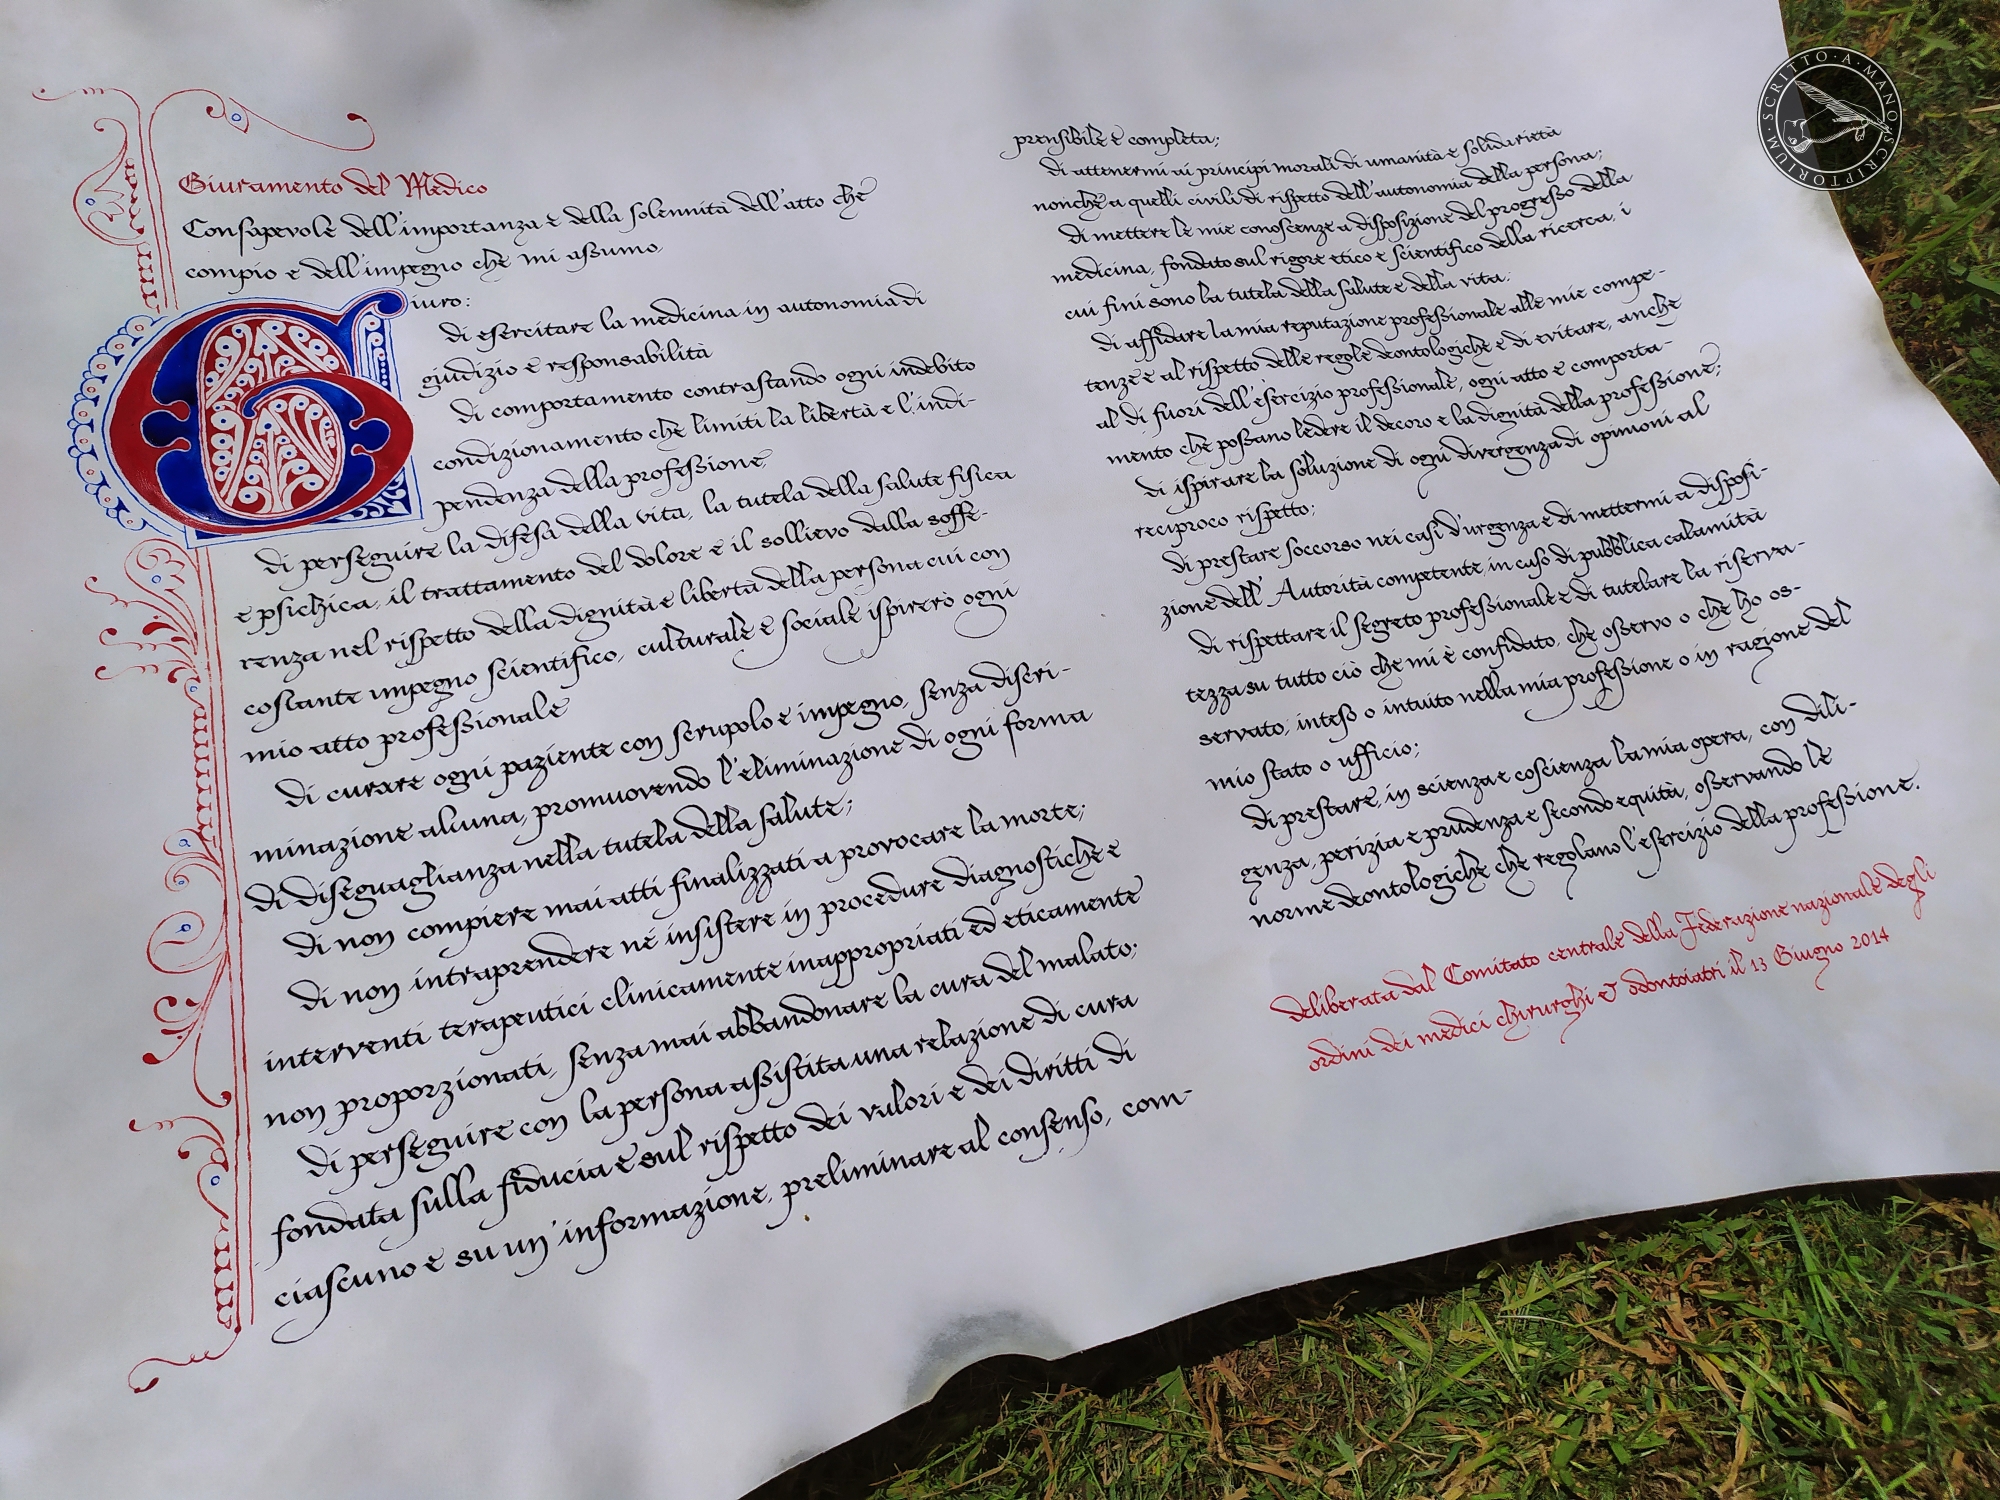 Giuramento del Medico
Consapevole dell'importanza e della solennità dell'atto che
compio e dell'impegno che mi assumo,
Giuro:
di esercitare la medicina in autonomia di
giudizio e responsabilità
di comportamento contrastando ogni indebito
condizionamento che limiti la libertà e l'indi-
pendenza della professione;
di perseguire la difesa della vita, la tutela della salute fisica
e psichica, il trattamento del dolore e il sollievo dalla soffe-
renza nel rispetto della dignità e libertà della persona cui con
costante impegno scientifico, culturale e sociale ispirerò ogni
mio atto professionale
di curare ogni paziente con scrupolo e impegno, senza discri-
minazione alcuna, promuovendo l'eliminazione di ogni forma
di diseguaglianza nella tutela della salute;
di non compiere mai atti finalizzati a provocare la morte;
di non intraprendere né insistere in procedure diagnostiche e
interventi terapeutici clinicamente inappropriati ed eticamente
non proporzionati, senza mai abbandonare la cura del malato;
di perseguire con la persona assistita una relazione di cura
fondata sulla fiducia e sul rispetto dei valori e dei diritti di
ciascuno e su un'informazione, preliminare al consenso, com-
prensibile e completa;
di attenermi ai principi morali di umanità e solidarietà
nonché a quelli civili di rispetto dell'autonomia della persona;
di mettere le mie conoscenze a disposizione del progresso della
medicina, fondato sul rigore etico e scientifico della ricerca, i
cui fini sono la tutela della salute e della vita;
di affidare la mia reputazione professionale alle mie compe-
tenze e al rispetto delle regole deontologiche e di evitare, anche
al di fuori dell'esercizio professionale, ogni atto e comporta-
mento che possano ledere il decoro e la dignità della professione;
di ispirare la soluzione di ogni divergenza di opinioni al
reciproco rispetto;
di prestare soccorso nei casi d'urgenza e di mettermi a disposi-
zione dell'Autorità competente, in caso di pubblica calamità
di rispettare il segreto professionale e di tutelare la riserva-
tezza su tutto ciò che mi è confidato, che osservo o che ho os-
servato, inteso o intuito nella mia professione o in ragione del
mio stato o ufficio;
di prestare, in scienza e coscienza la mia opera, con dili-
genza, perizia e prudenza e secondo equità, osservando le
norme deontologiche che regolano l'esercizio della professione.
deliberata dal Comitato centrale della Federazione nazionale degli
ordini dei medici chirurghi & odontoiatri il 13 Giugno 2014
SCRITTO·A·MANO·SCRIPTORIUM·